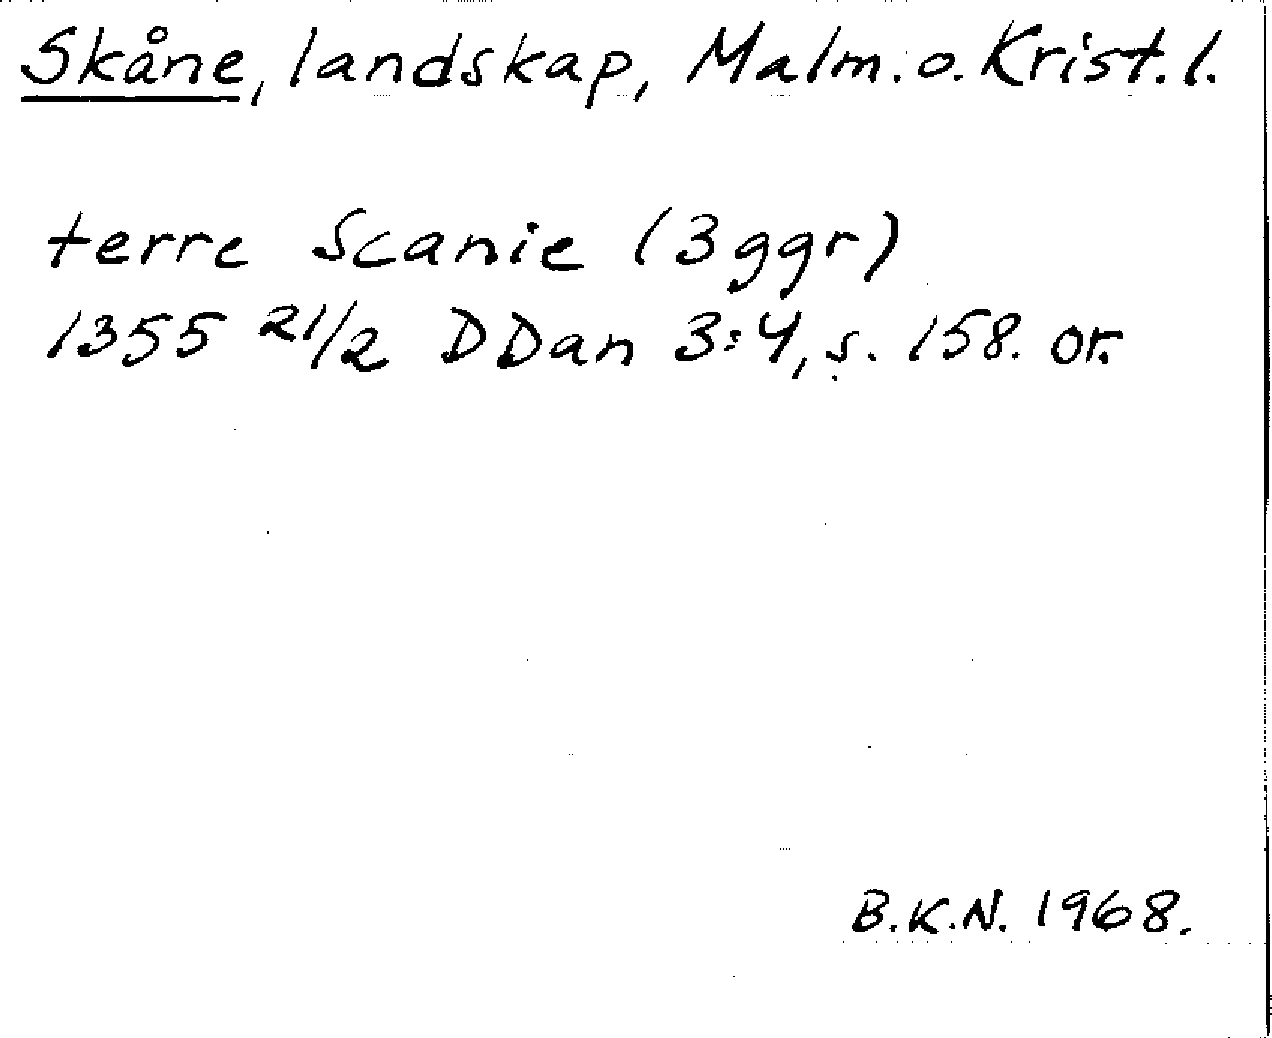 Skåne, landskap, Malm. o. Krist. l.
terre Scanie (3 ggr)
1355 21/2 DDan 3:4, s. 158. or.
B.K.N. 1968.